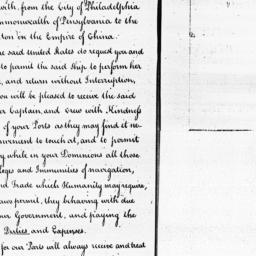 with, from the City of Philadelphia
mmonwealth of Pensylvania to the
ton in the Empire of China.
he said United States to request you and
to permit the said Ship to perform her
, and return without Interruption,
ou will be pleased to receive the said
er Captain, and Crew with Kindness
of your Ports as they may find it ne-
nvenient to touch at, and to permit
y while in your Dominions all those
leges and Immunities of navigation,
nd Trade which Humanity may require,
aws permit, they behaving with due
our Government, and paying the
Duties and Expenses.
for our Parts will always receive and treat